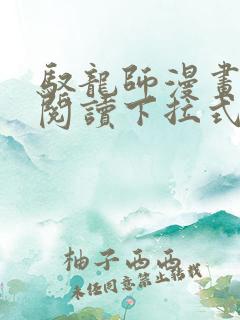 馭龍師漫畫
閱讀下拉式
柚子西西
未任同意禁止轉載